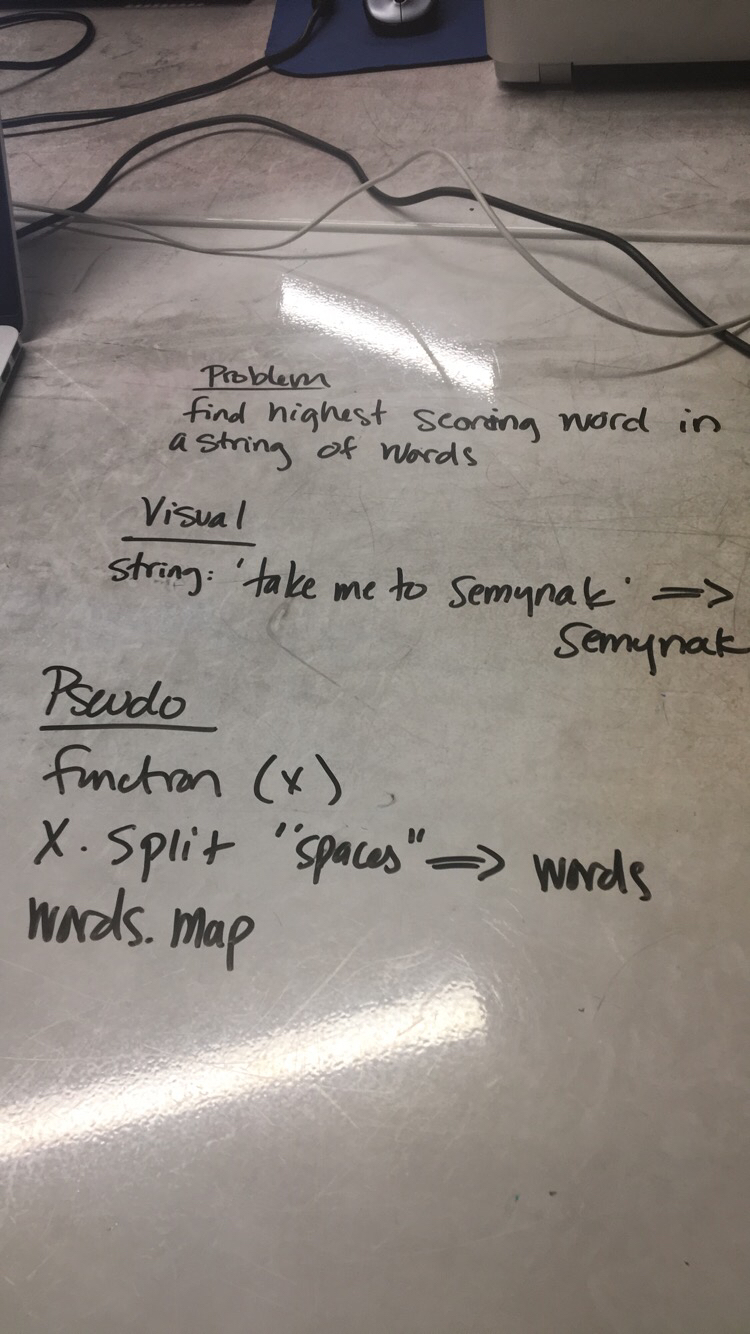 Problem
find highest scoring word in
a string of words
Visual
string: 'take me to Semynak' =>
Semynak
Pseudo
function (x)
X. Split "spaces" => words
words. map